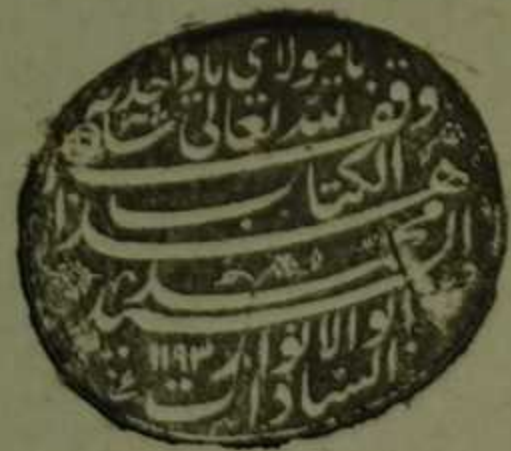 يا مولاي يا واحد
وقف لله تعالى
هذا الكتاب
محمد
ابو الانوار ١١٩٣
السادات